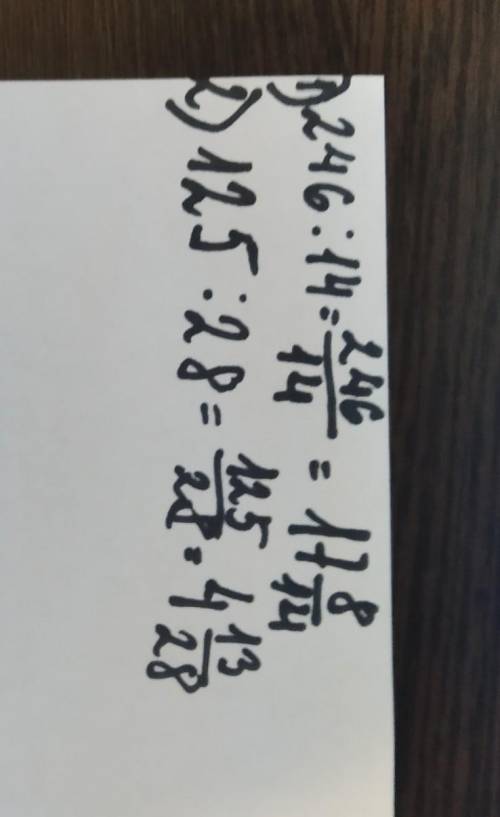 1) 246 : 14 = 246/14 = 17 8/14
2) 125 : 28 = 125/28 = 4 13/28